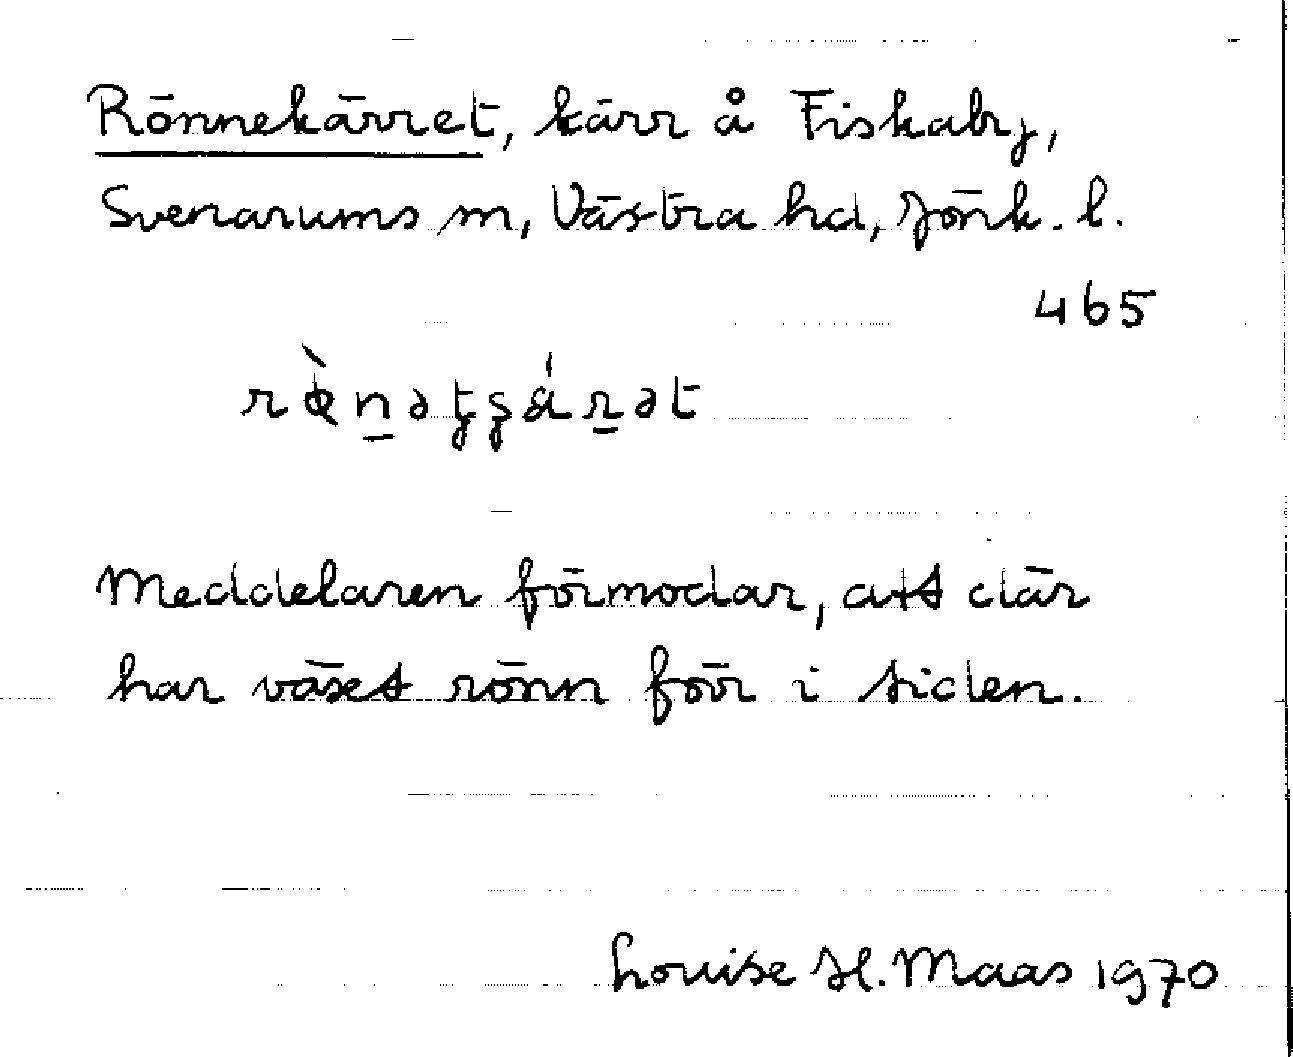 Rönnekärret, kärr å Fiskaby,
Svenarums sn, Västra hd, Jönk. l.
465
Meddelaren förmodar, att där
har växt rönn förr i tiden.
Louise H. Maas 1970